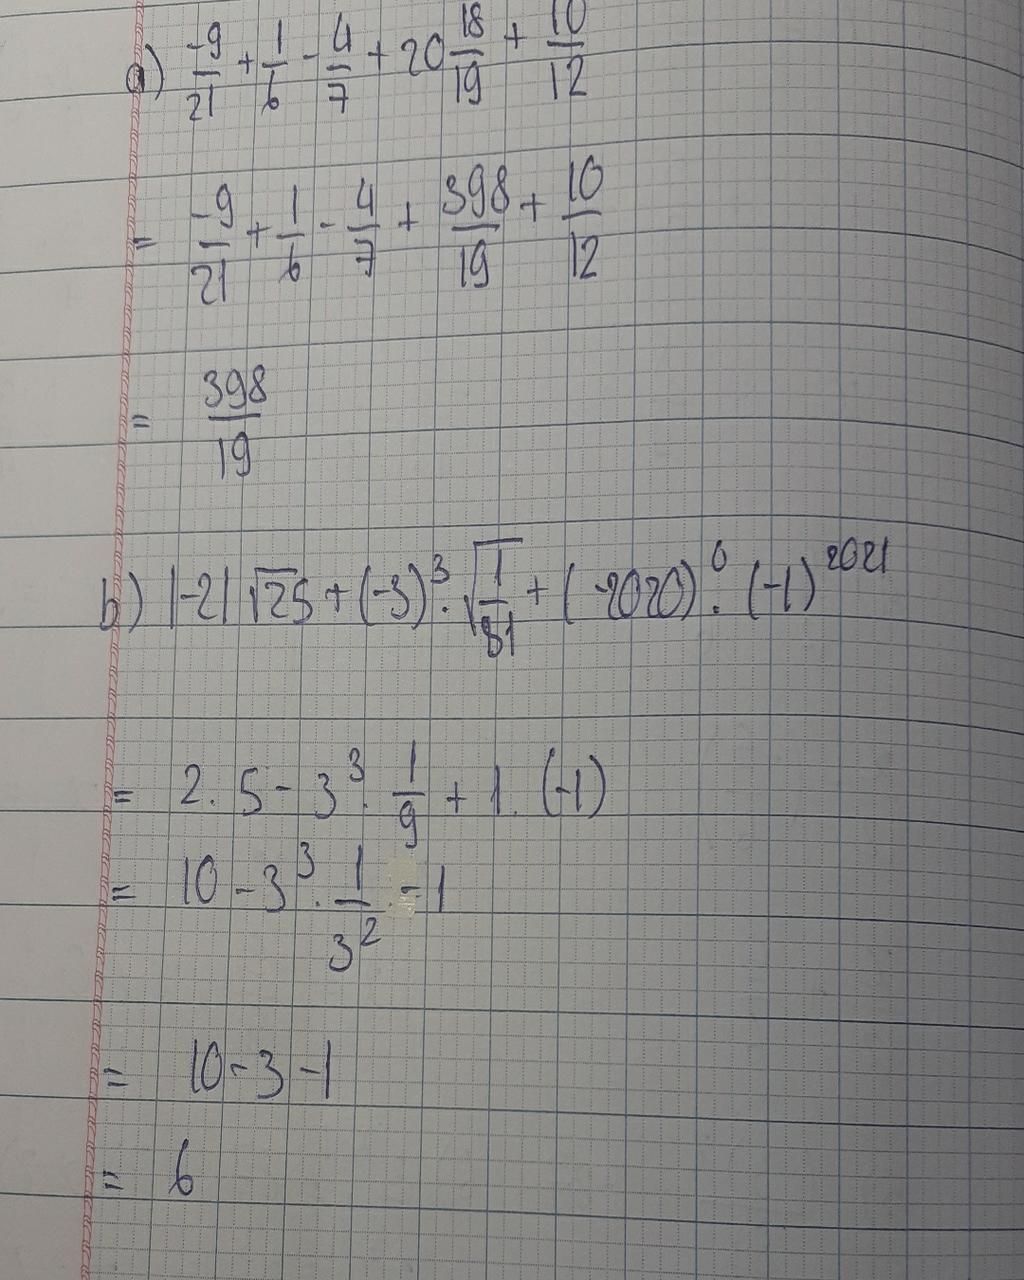 a) -9/21 + 1/6 - 4/7 + 20 18/19 + 10/12
= -9/21 + 1/6 - 4/7 + 398/19 + 10/12
= 398/19
b) |-2| √25 + (-3)³ . √(1/81) + (-2020)⁰ . (-1)²⁰²¹
= 2 . 5 - 3³ . 1/9 + 1 . (-1)
= 10 - 3³ . 1/3² - 1
= 10 - 3 - 1
= 6